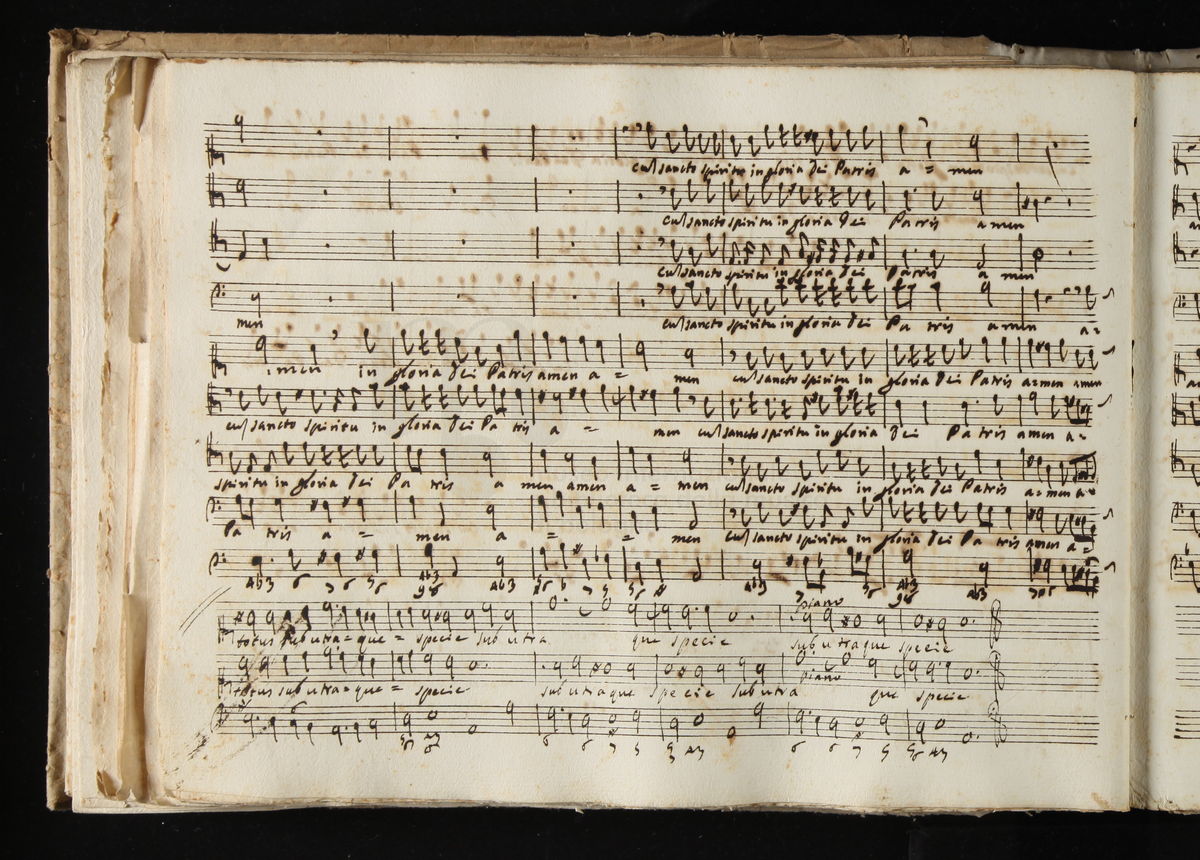 cu sancto spiritu in gloria Dei Patris a = men
cu sancto spiritu in gloria Dei Patris amen
cu sancto spiritu in gloria Dei Patris a men
men cu sancto spiritu in gloria Dei Pa tris amen a=
men in gloria Dei Patris amen a = men cu sancto spiritu in gloria Dei Patris a=men amen
cu sancto spiritu in gloria Dei Pa tris a = men cu sancto spiritu in gloria Dei Pa tris amen a=
spiritu in gloria Dei Pa tris a men amen a = men cu sancto spiritu in gloria Dei Patris a=men a=
Pa tris a = men a = = men cu sancto spiritu in gloria Dei Pa tris amen a=
piano
totus sub utra=que= specie sub utra que specie sub utraque specie
piano
totus sub utra=que= specie sub utraque specie sub utra que specie